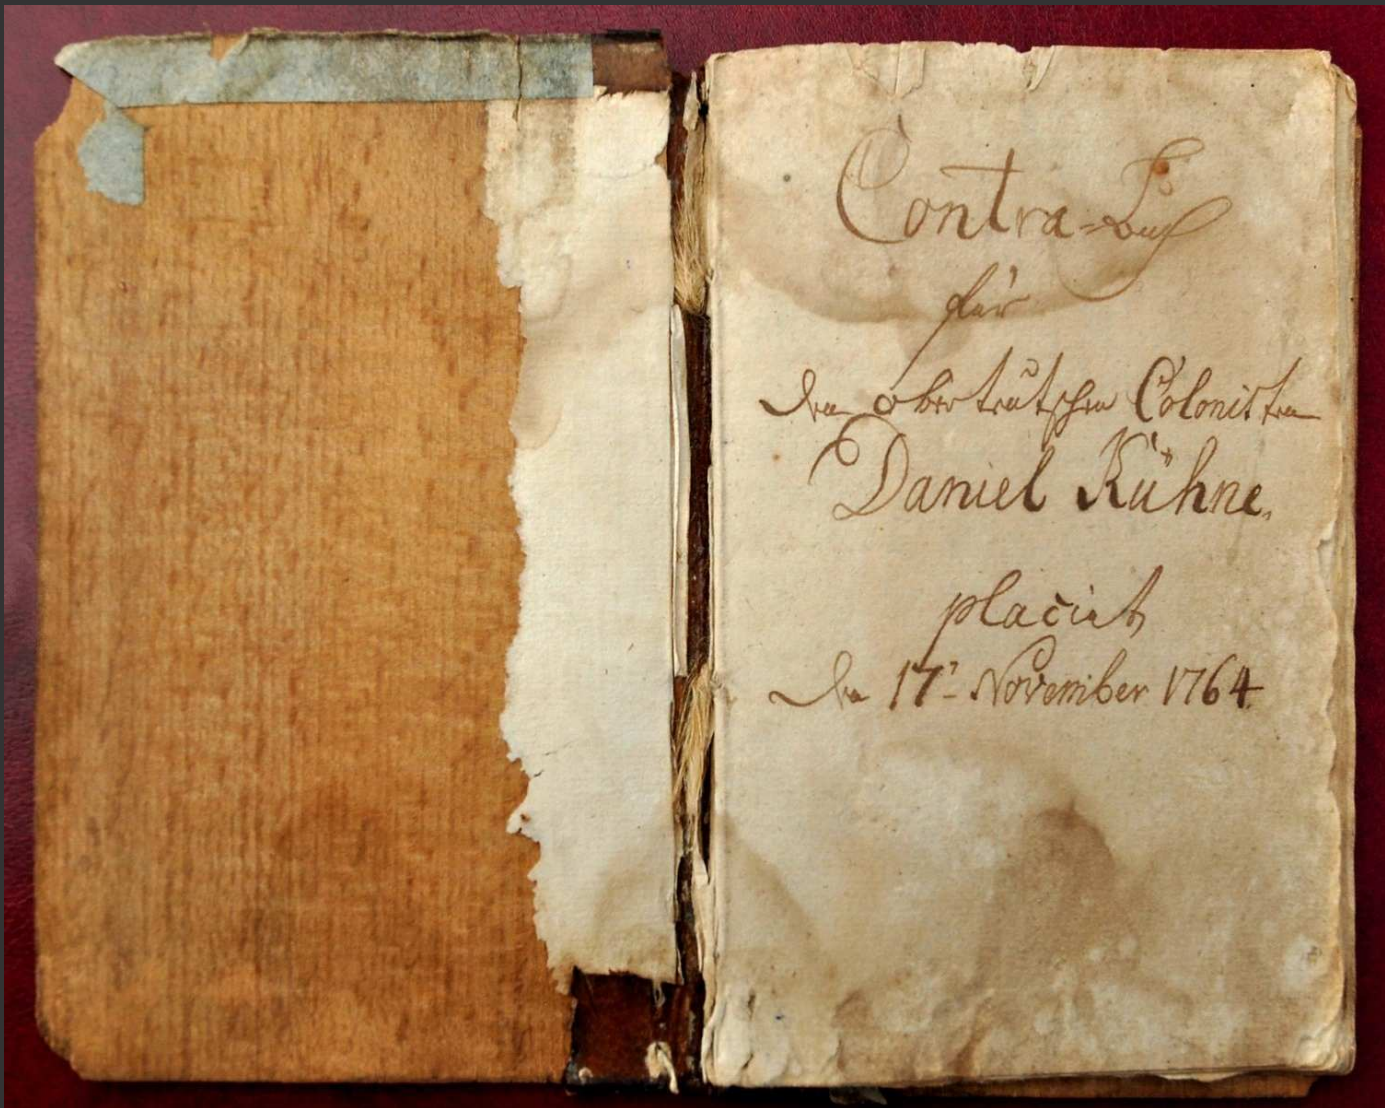 Contra-Buch
für
den oberteutschen Colonisten
Daniel Kühne.
placirt
den 17ᵗ November 1764